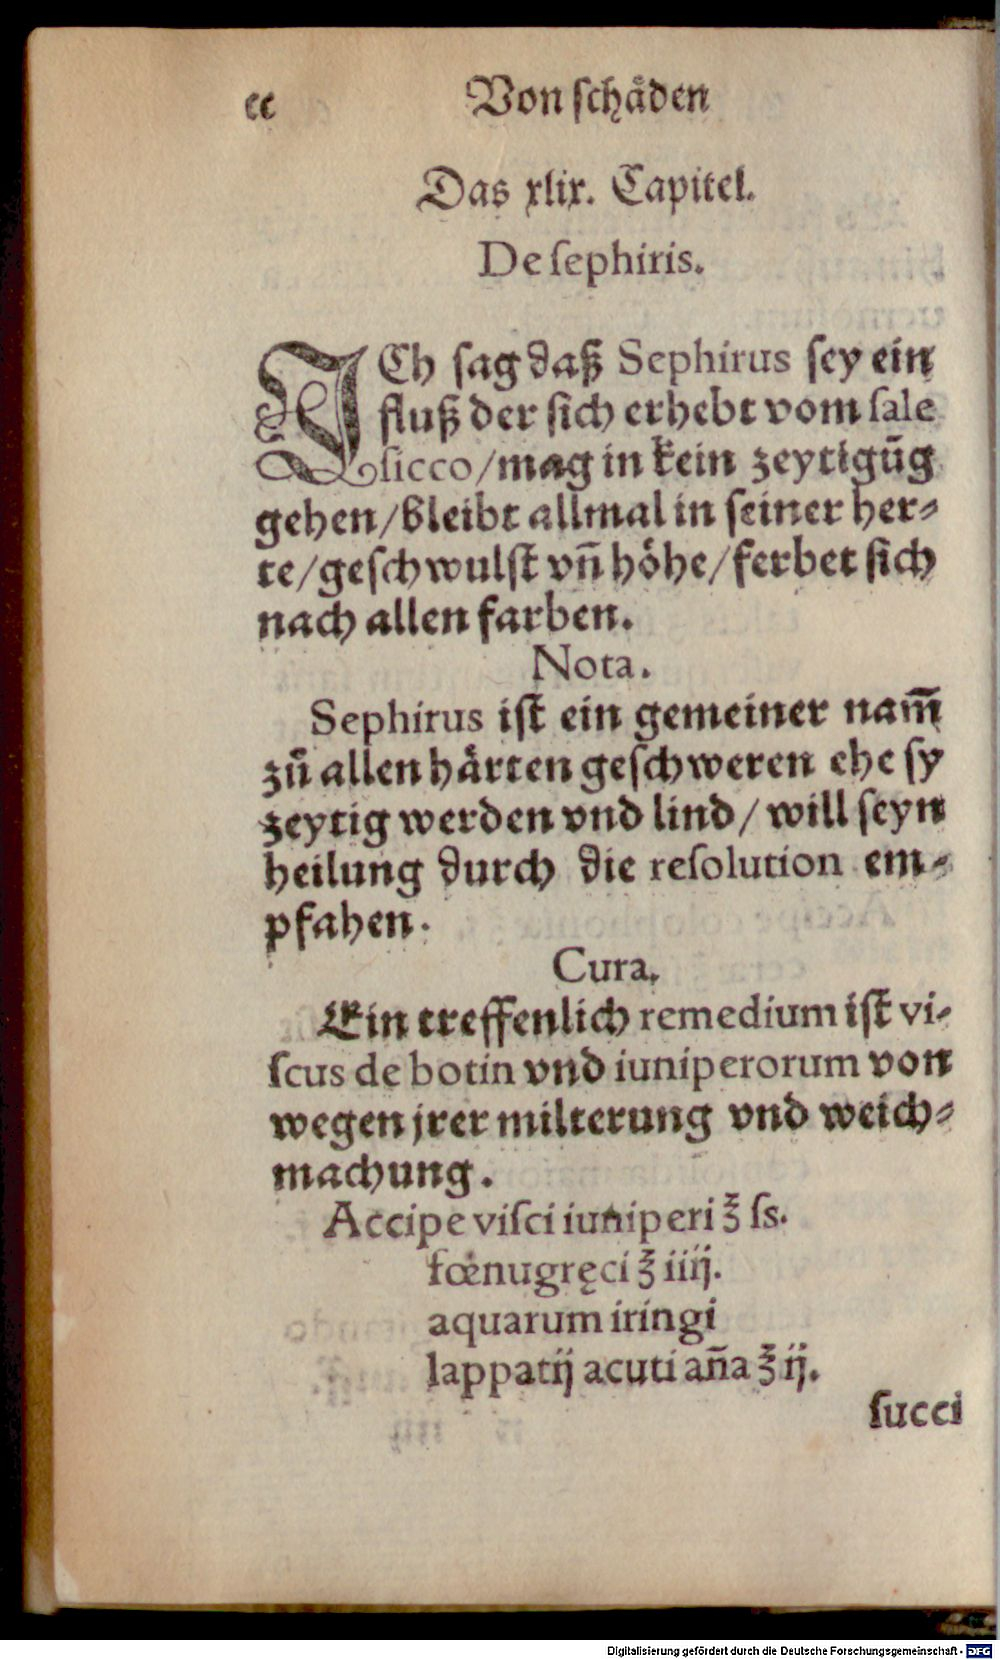 cc Von ſchåden
Das xlix. Capitel.
De ſephiris.
ICh ſag daß Sephirus ſey ein
fluß der ſich erhebt vom ſale
ſicco/mag in kein zeytigūg
gehen/bleibt allmal in ſeiner her⸗
te/geſchwulſt vñ höhe/ferbet ſich
nach allen farben.
Nota.
Sephirus iſt ein gemeiner nam̄
zů allen hårten geſchweren ehe ſy
zeytig werden vnd lind/ will ſeyn
heilung durch die reſolution em⸗
pfahen.
Cura.
Ein treffenlich remedium iſt vi⸗
ſcus de botin vnd iuniperorum von
wegen jrer milterung vnd weich⸗
machung.
Accipe viſci iuniperi ℥ ſs.
fœnugręci ℥ iiij.
aquarum iringi
lappatij acuti aña ℥ ij.
ſucci
Digitalisierung gefördert durch die Deutsche Forschungsgemeinschaft - DFG